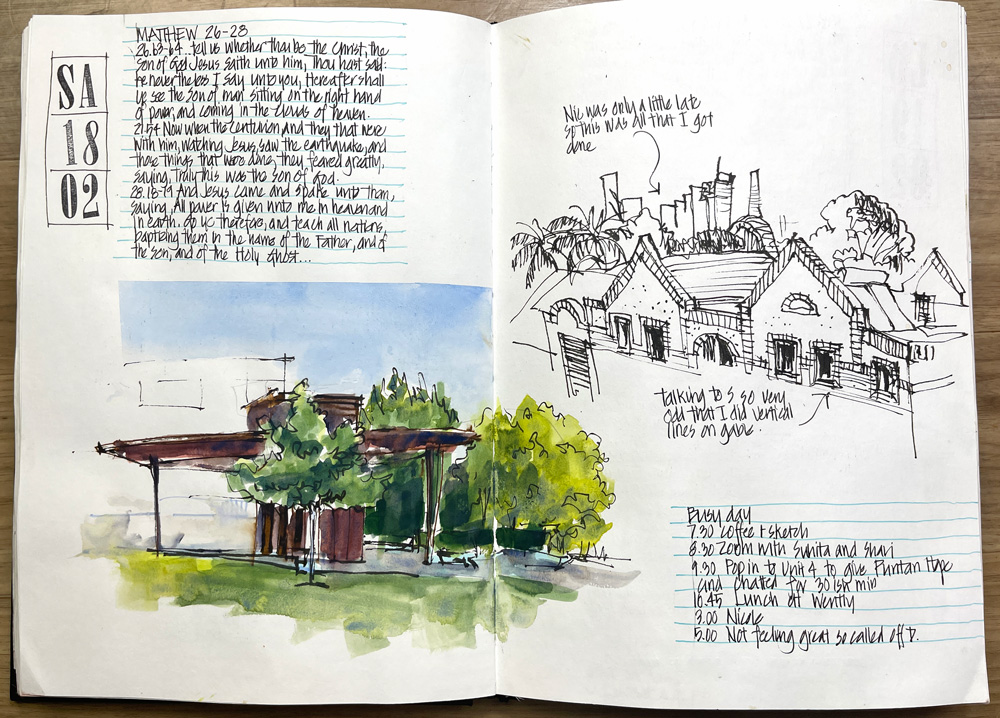 SA
18
02
MATTHEW 26-28
26.63-64...tell us whether thou be the Christ, the
son of God Jesus saith unto him, Thou hast said:
he nevertheless I say unto you, Hereafter shall
ye see the Son of man sitting on the right hand
of power, and coming in the clouds of heaven.
27.54 Now when the centurion and they that were
with him, watching Jesus, saw the earthquake, and
those things that were done, they feared greatly,
saying, Truly this was the son of God.
28.18-19 And Jesus came and spake unto them,
saying, All power is given unto me in heaven and
in earth. Go ye therefore, and teach all nations,
baptizing them in the name of the Father, and of
the Son, and of the Holy Ghost...
Nic was only a little late
so this was all that I got
done
talking to S so very
odd that I did vertical
lines on gable.
Busy day
7.30 Coffee + sketch
8.30 Zoom with Sunita and Shari
9.30 Pop in to Unit 4 to give
and chatted for 30 min
10.45 Lunch at
3.00 Nicole
5.00 Not feeling great so called off